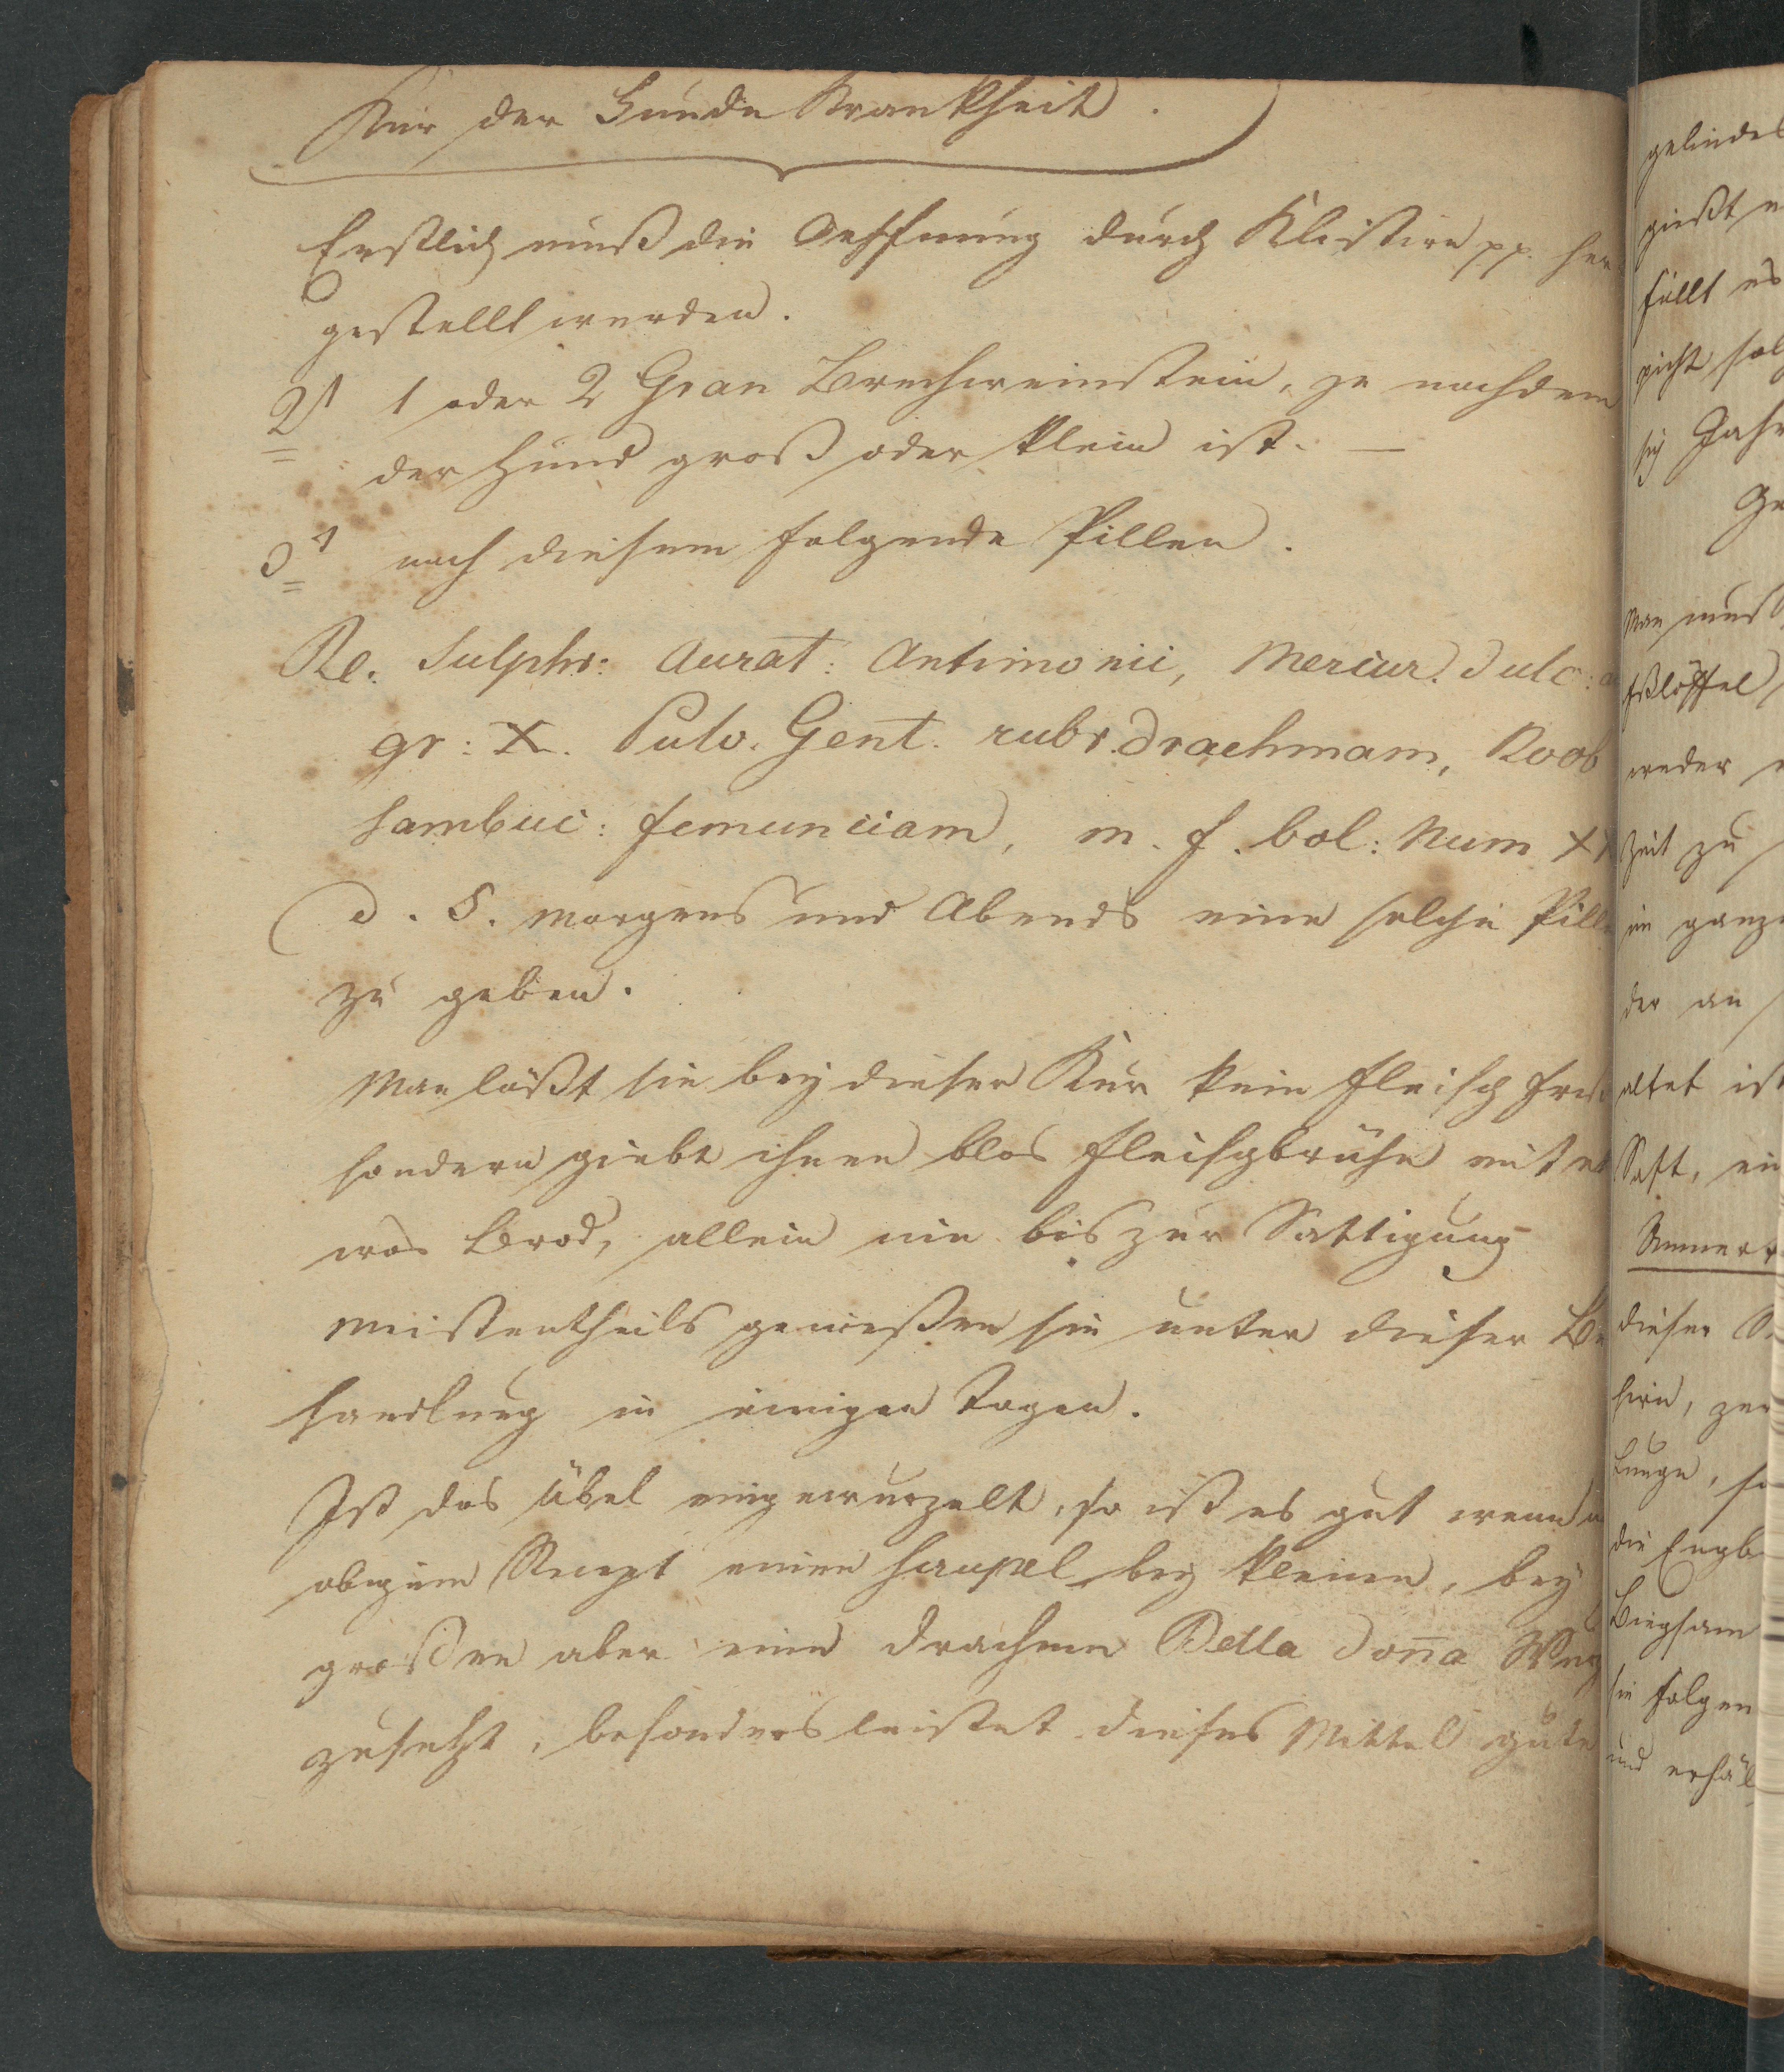 Kur der Hunde Krankheit.
Erstlich muß die Oeffnung durch Klistire pp. her
gestellt werden.
2) 1 oder 2 Gran Brechweinstein, je nachdem
der Hund groß oder klein ist. —
3) nach diesem folgende Pillen.
Re. Sulphr: Aurat: Antimonii, Mercur. dulc: a
gr: X. Pulv. Gent. rubr. drachmam, Roob
Sambuci: semunciam, m. f. bol: Num XX
d. S. morgens und Abends eine solche Pille
zu geben.
Man läßt sie bey dieser Kur kein Fleisch fres
sondern giebt ihnen blos Fleischbrühe mit et
was Brod, allein nie bis zur Sättigung
meistentheils genesen sie unter dieser Be
handlung in einigen Tagen.
Ist das Übel eingewurzelt, so ist es gut wenn
obigem Recept einen Scrupel bey kleinen, bey
großen aber eine Drachme Bella Doña Wurz
zusetzt, besonders leistet dieses Mittel gute
gelindes
gießt
füllt es
nicht
sich Jahr
Ge
Man muß
Eßlöffel
weder
Zeit zu
ein ganze
der an
altet ist
Saft, ein
Anmerk
dieser
hirn, zer
Lunge, so
die Engb
Biegsam
sie folgen
und erhäl